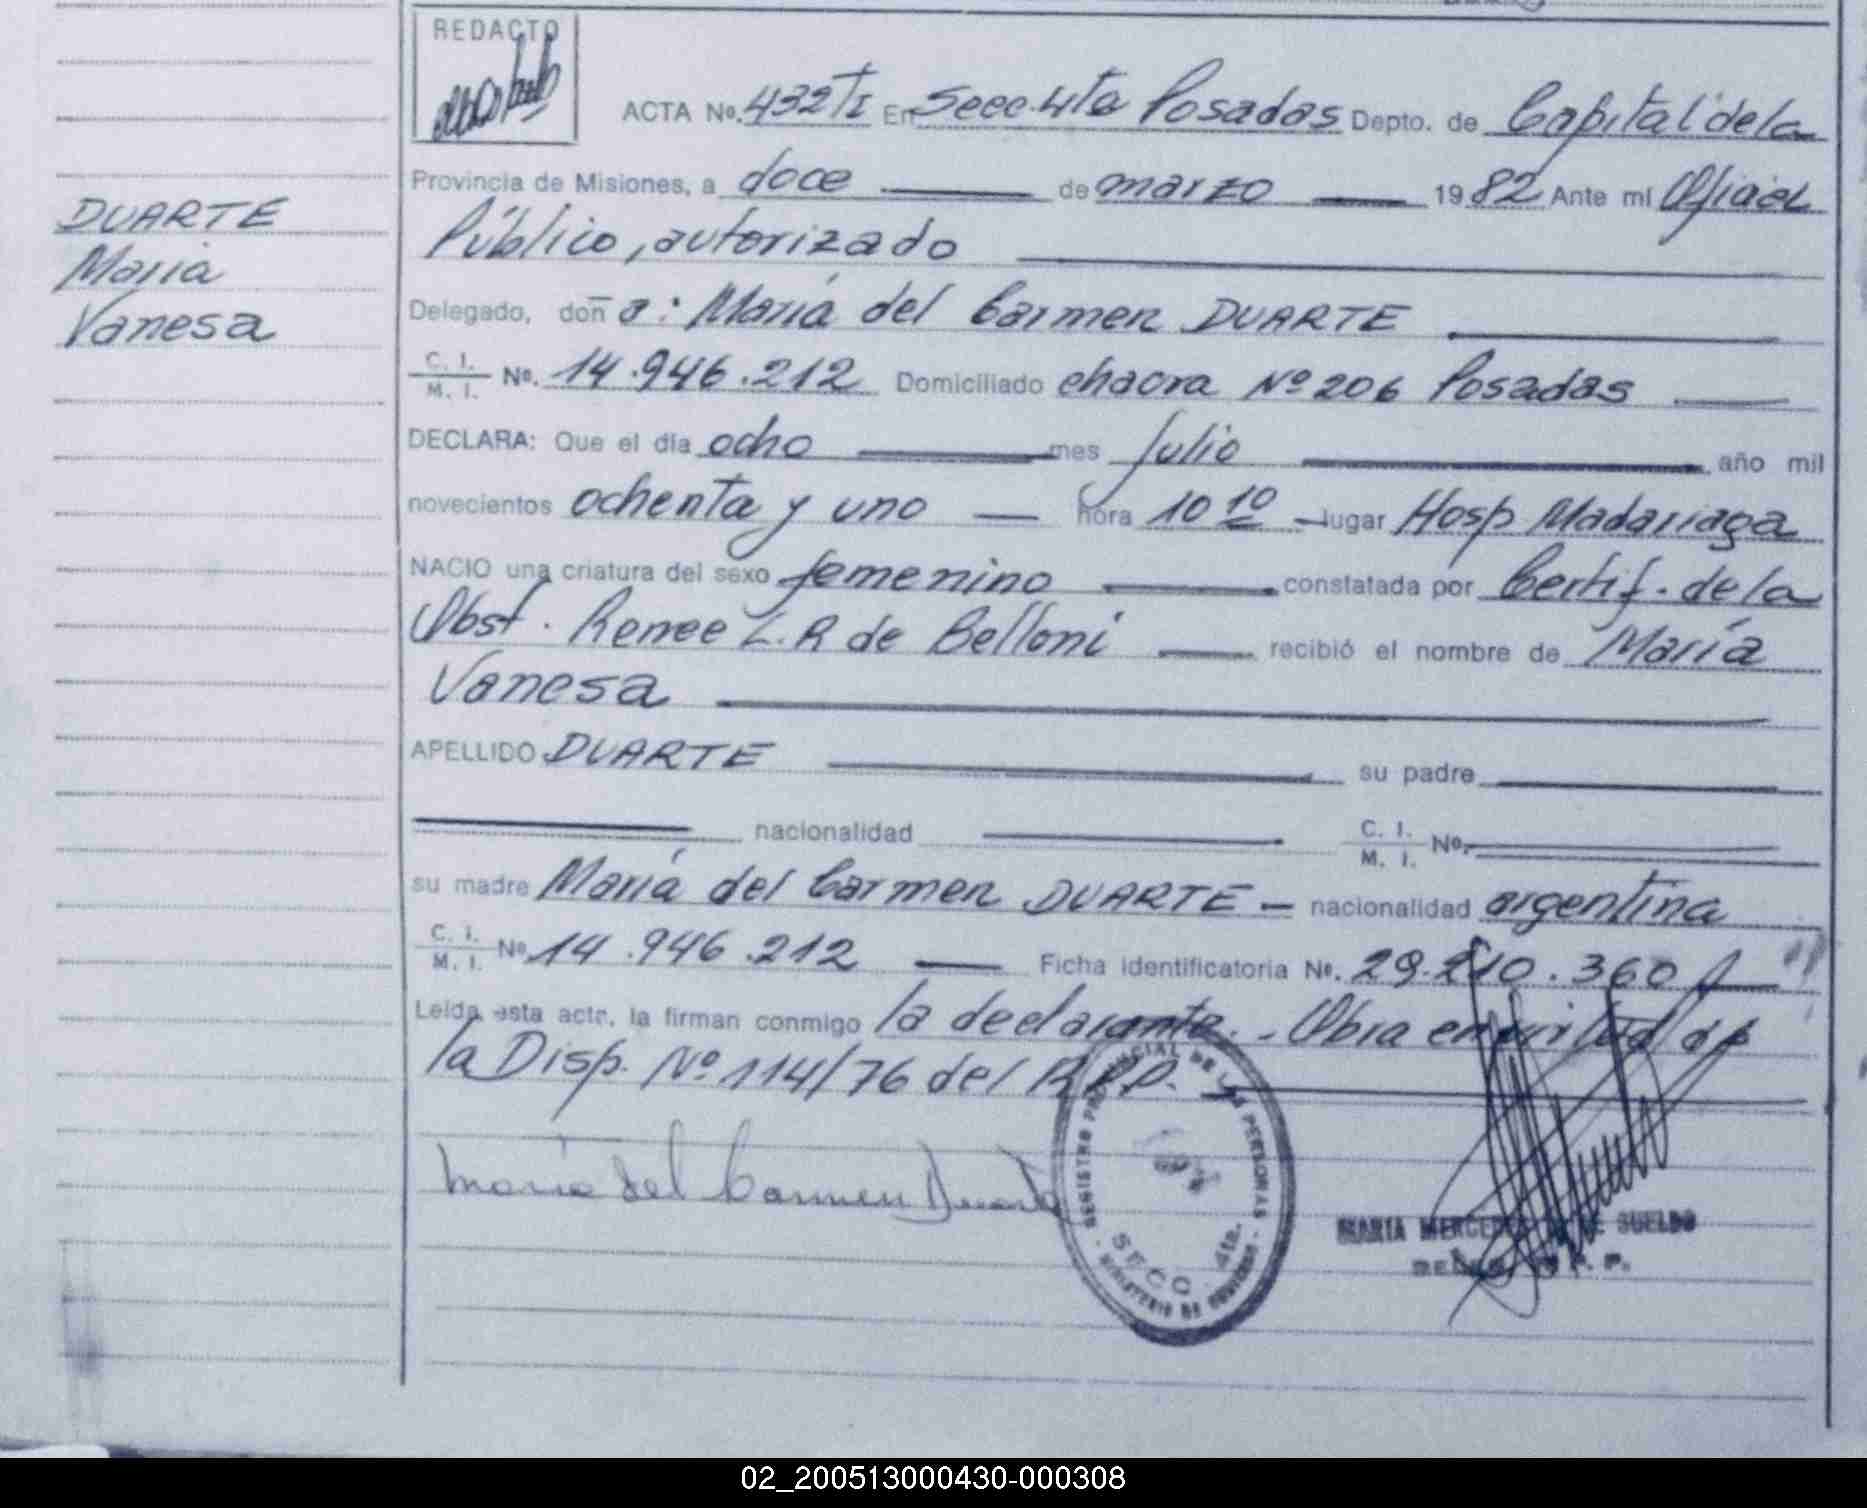 REDACTO
ACTA No. 432 TI En Secc. 4ta Posadas Depto. de Capital de la
Provincia de Misiones, a doce de marzo 1982 Ante mi Oficial
Público, autorizado
DUARTE
María
Vanesa
Delegado, doña: María del Carmen DUARTE
C. I.
M. I. Nº. 14.946.212 Domiciliado chacra Nº 206 Posadas
DECLARA: Que el día ocho mes Julio año mil
novecientos ochenta y uno hora 10 10 lugar Hosp Madariaga
NACIO una criatura del sexo femenino constatada por Certif. de la
Obst. Renee L. R de Belloni recibió el nombre de María
Vanesa
APELLIDO DUARTE su padre
nacionalidad C. I.
M. I. Nº.
su madre María del Carmen DUARTE nacionalidad argentina
C. I.
M. I. Nº 14.946.212 Ficha identificatoria Nº. 29.210.360
Leída esta acta, la firman conmigo la declarante. - Obra en virtud de
la Disp. Nº 114/76 del R.P.P.
María del Carmen Duarte
REGISTRO PROVINCIAL DE LAS PERSONAS
SECC. 4ta.
MINISTERIO DE GOBIERNO
MARIA MERCEDES SUELDO
02_200513000430-000308